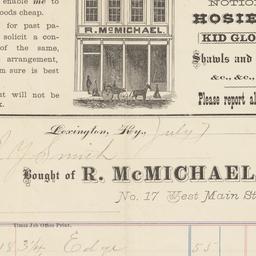 enable me to
goods cheap.
for past pa-
solicit a con-
of the same,
arrangement,
m sure is best
but will not be
k.
R. McMICHAEL.
NOTION
HOSIE
KID GLO
Shawls and
&c., &c.,
Please report al
Lexington, Ky., July 7
Smith
Bought of R. McMICHAEL,
No. 17 West Main St
Times Job Office Print.
18 3/4 Edge 55